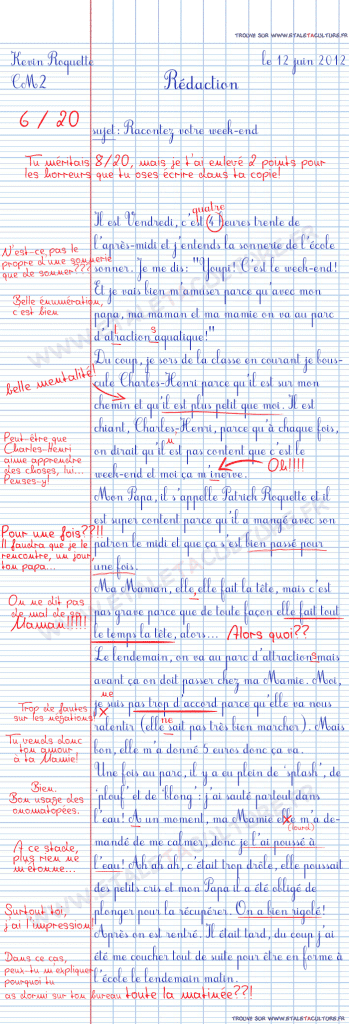 TROUVÉ SUR WWW.ETALETACULTURE.FR
Kevin Roquette le 12 juin 2012
CM2 Rédaction
6 / 20
sujet : Racontez votre week-end
Tu méritais 8/20, mais je t'ai enlevé 2 points pour
les horreurs que tu oses écrire dans ta copie!
quatre
Il est Vendredi, c'est 4 heures trente de
l'après-midi et j'entends la sonnerie de l'école
N'est-ce pas le
propre d'une sonnerie
que de sonner???
sonner. Je me dis : "Youpi! C'est le week-end!
Et je vais bien m'amuser parce qu'avec mon
Belle énumération,
c'est bien
papa, ma maman et ma mamie on va au parc
d'attraction aquatique!"
s
Du coup, je sors de la classe en courant je bous-
belle mentalité!
cule Charles-Henri parce qu'il est sur mon
chemin et qu'il est plus petit que moi. Il est
chiant, Charles-Henri, parce qu'à chaque fois,
Peut-être que
Charles-Henri
aime apprendre
des choses, lui...
Penses-y!
on dirait qu'il est pas content que c'est le
n'
week-end et moi ça m'inerve.
Oh!!!!
Mon Papa, il s'appelle Patrick Roquette et il
est super content parce qu'il a mangé avec son
Pour une fois??!!
Il faudra que je le
rencontre, un jour,
ton papa...
patron le midi et que ça s'est bien passé pour
une fois.
Ma Maman, elle, elle fait la tête, mais c'est
On ne dit pas
de mal de sa
Maman!!!!!
pas grave parce que de toute façon elle fait tout
le temps la tête, alors... Alors quoi??
Le lendemain, on va au parc d'attractions mais
avant ça on doit passer chez ma Mamie. Moi,
ne
Trop de fautes
sur les négations!
je suis pas trop d'accord parce qu'elle va nous
ne
ralentir (elle sait pas très bien marcher). Mais
Tu vends donc
ton amour
à ta Mamie!
bon, elle m'a donné 5 euros donc ça va.
Une fois au parc, il y a eu plein de 'splash', de
Bien.
Bon usage des
onomatopées.
'plouf' et de 'blong' : j'ai sauté partout dans
l'eau! A un moment, ma Mamie elle m'a de-
(lourd)
A ce stade,
plus rien ne
m'étonne...
mandé de me calmer, donc je l'ai poussé à
l'eau! Ah ah ah, c'était trop drôle, elle poussait
des petits cris et mon Papa il a été obligé de
Surtout toi,
j'ai l'impression!
plonger pour la récupérer. On a bien rigolé!
Après on est rentré. Il était tard, du coup j'ai
Dans ce cas,
peux-tu m'expliquer
pourquoi tu
as dormi sur ton bureau toute la matinée??!
été me coucher tout de suite pour être en forme à
l'école le lendemain matin.
TROUVÉ SUR WWW.ETALETACULTURE.FR